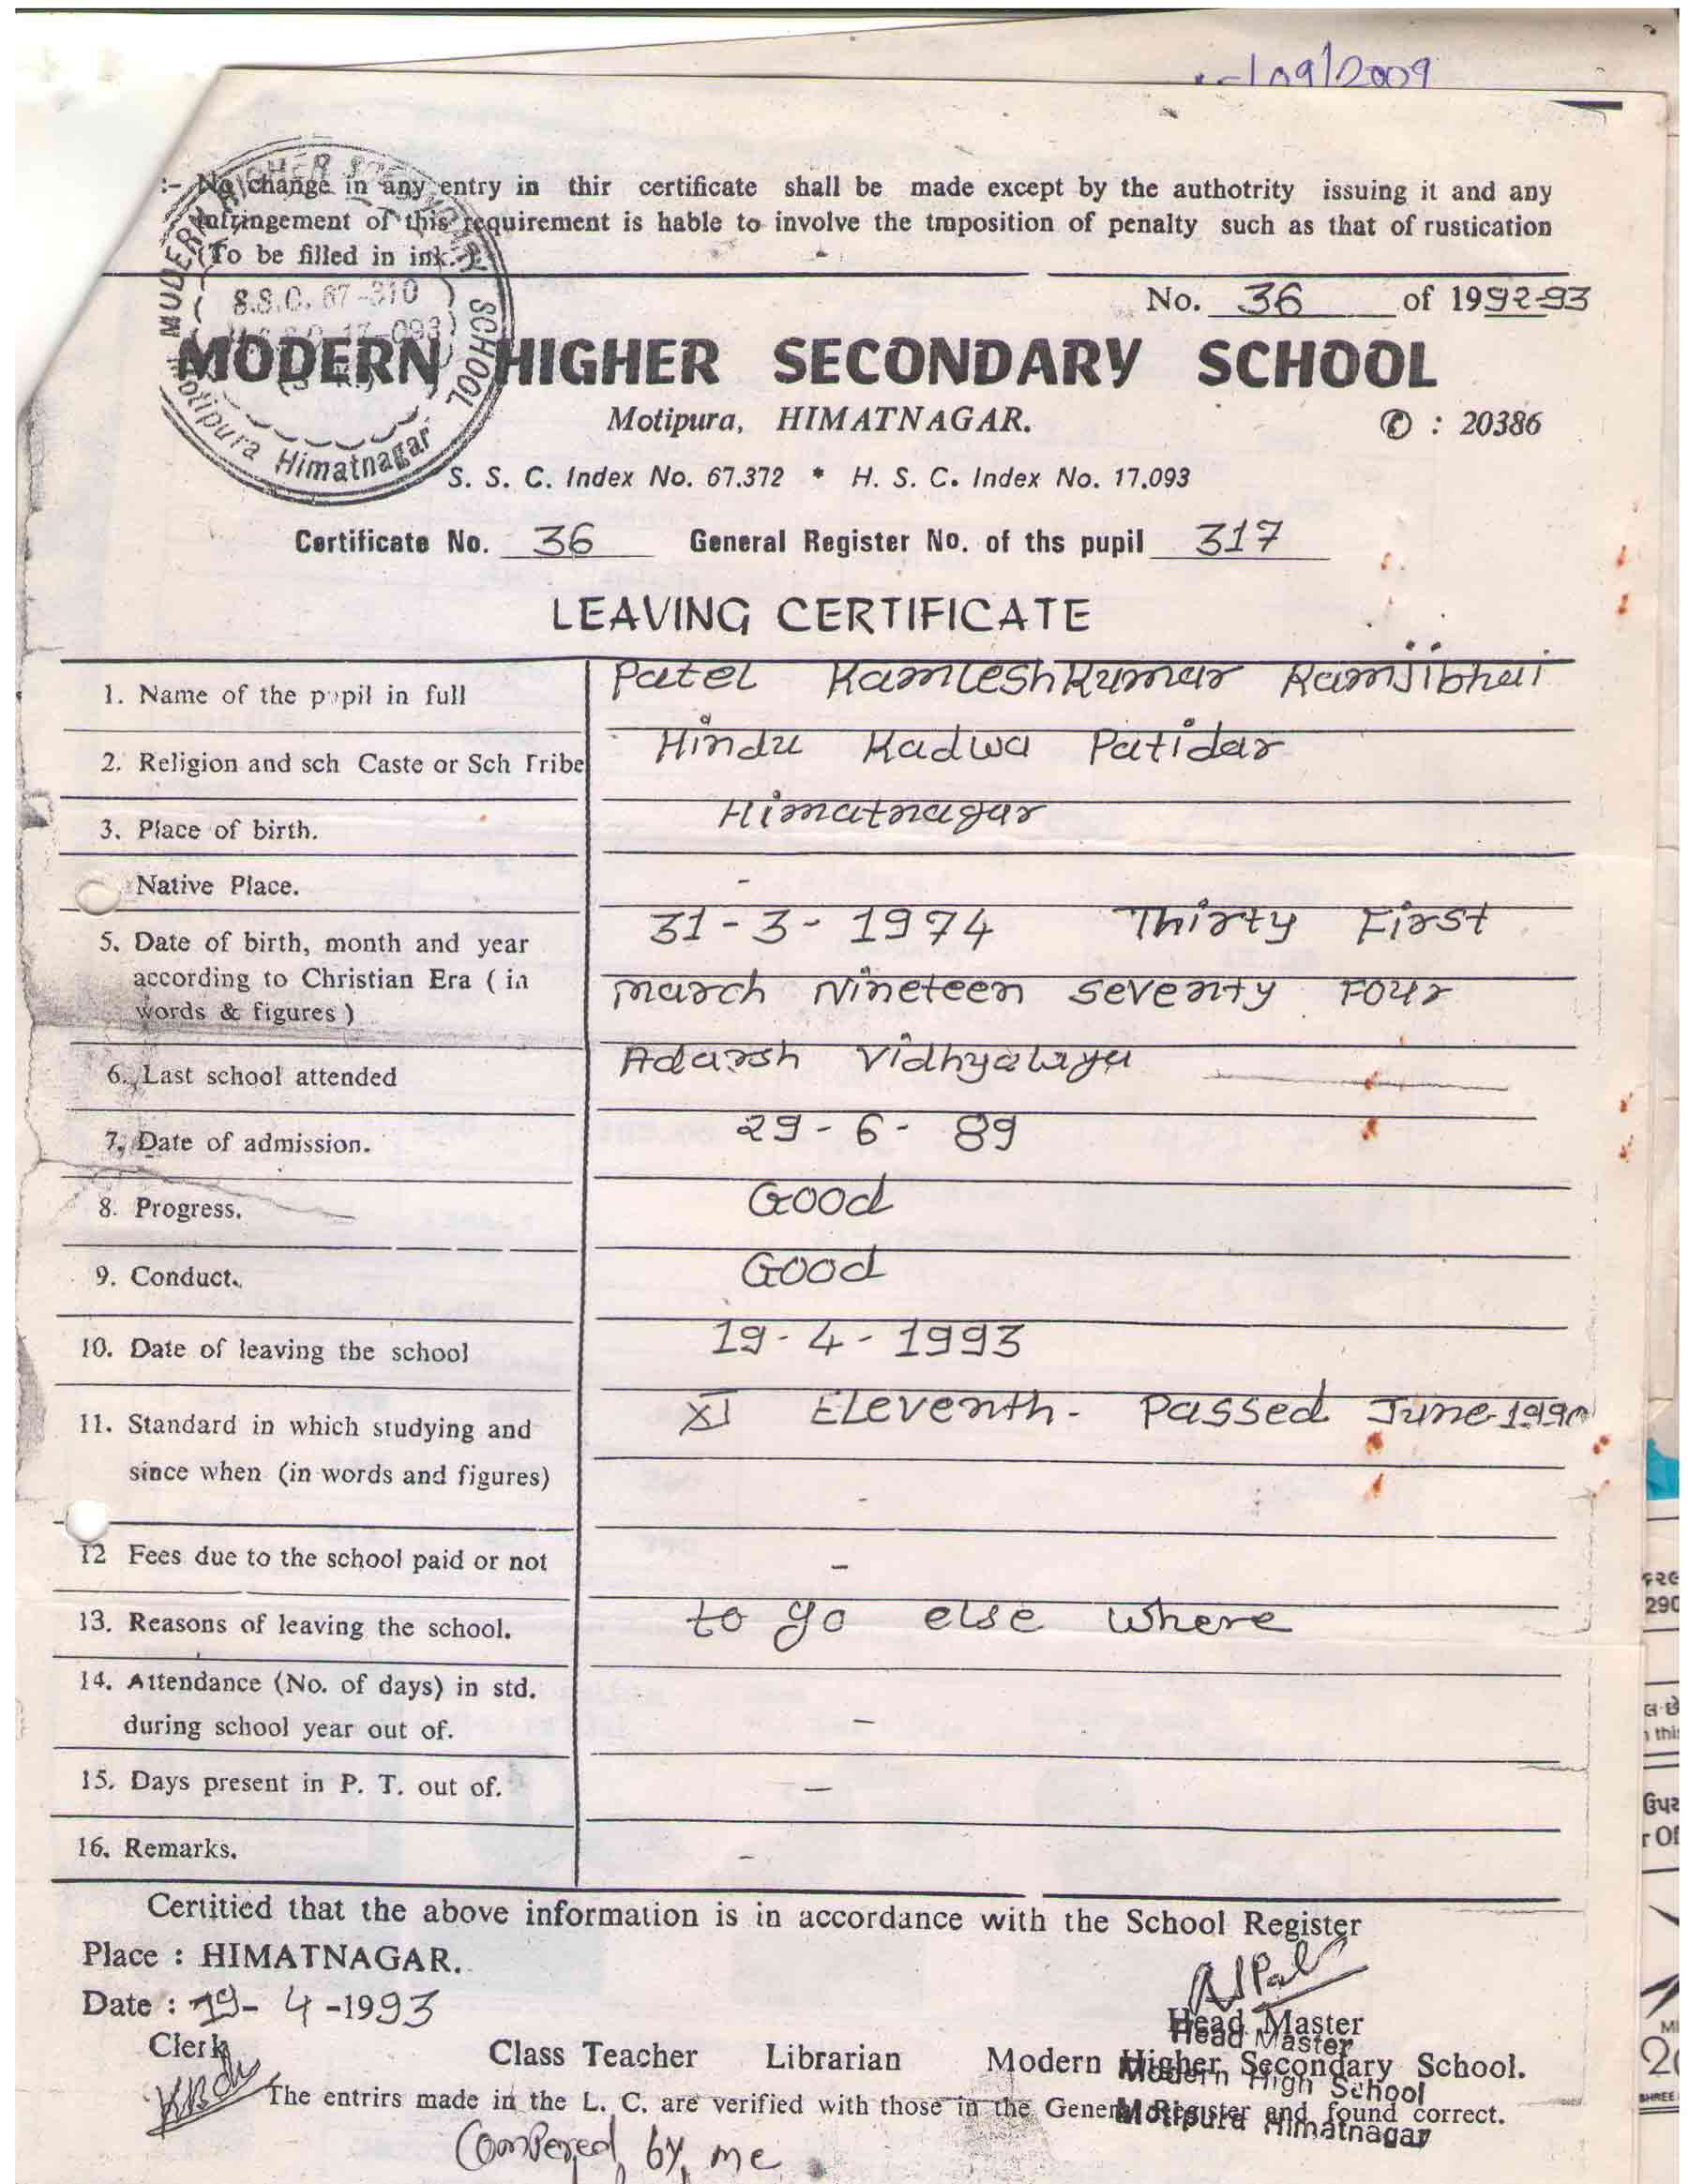 /09/2009
:- No change in any entry in thir certificate shall be made except by the authotrity issuing it and any
infringement of this requirement is hable to involve the tmposition of penalty such as that of rustication
(To be filled in ink.)
MODERN HIGHER SECONDARY SCHOOL
S.S.C. 67-310
17-093
Motipura Himatnagar
No. 36 of 1992-93
MODERN HIGHER SECONDARY SCHOOL
Motipura, HIMATNAGAR. ✆ : 20386
S. S. C. Index No. 67.372 * H. S. C. Index No. 17.093
Certificate No. 36 General Register No. of ths pupil 317
LEAVING CERTIFICATE
1. Name of the pupil in full Patel Kamleshkumar Ramjibhai
2. Religion and sch Caste or Sch Tribe Hindu Kadwa Patidar
3. Place of birth. Himatnagar
Native Place. -
5. Date of birth, month and year 31-3-1974 Thirty First
according to Christian Era ( in march Nineteen seventy Four
words & figures )
6. Last school attended Adarsh Vidhyalaya
7. Date of admission. 29-6-89
8. Progress. Good
9. Conduct. Good
10. Date of leaving the school 19-4-1993
11. Standard in which studying and XI Eleventh- Passed June-1990
since when (in words and figures)
-
12 Fees due to the school paid or not -
13. Reasons of leaving the school. to go else where
14. Attendance (No. of days) in std.
during school year out of. -
15. Days present in P. T. out of. -
16. Remarks. -
Certitied that the above information is in accordance with the School Register
Place : HIMATNAGAR.
Date : 19-4-1993
Head Master
Head Master
Clerk Class Teacher Librarian Modern Higher Secondary School.
Modern High School
The entrirs made in the L. C. are verified with those in the General Register and found correct.
Motipura Himatnagar
Compered by me